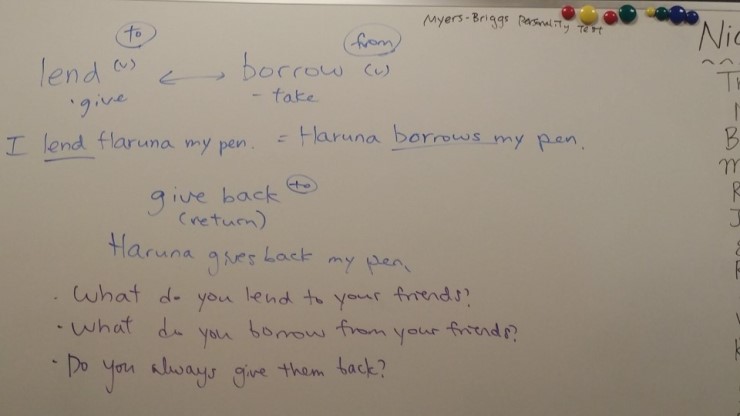 Myers-Briggs Personality Test
to
from
lend (v) ↔ borrow (v)
· give - take
I lend Haruna my pen. = Haruna borrows my pen.
give back to
(return)
Haruna gives back my pen.
· What do you lend to your friends?
· What do you borrow from your friends?
· Do you always give them back?
Nic